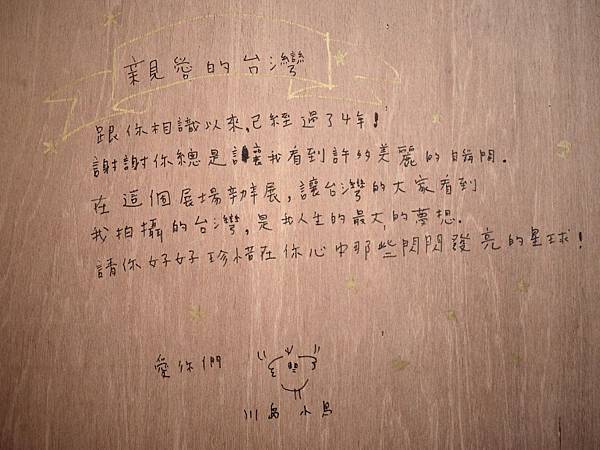 親愛的台灣
跟你相識以來,已經過了4年!
謝謝你總是讓我看到許多美麗的瞬間.
在這個展場辦展,讓台灣的大家看到
我拍攝的台灣,是我人生的最大的夢想.
請你好好珍惜在你心中那些閃閃發亮的星球!
愛你們
川島小鳥